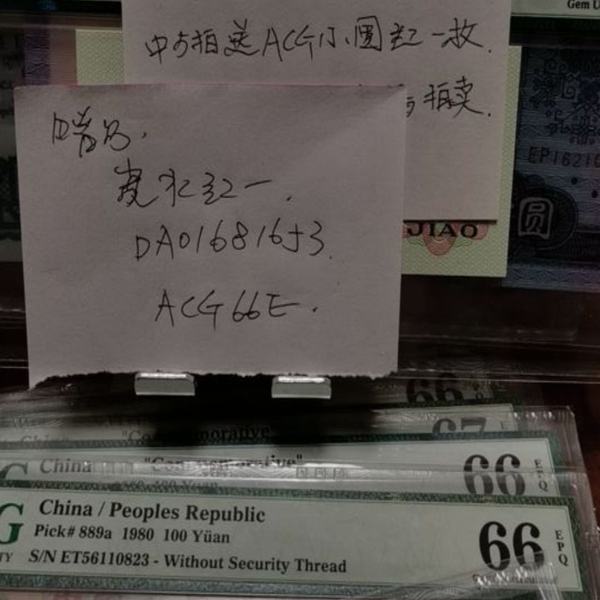 Gem U
中与拍送ACG小圄红一枚.
拍卖.
EP16210
圆
JIAO
DA01681653
ACG66E.
66
67
China "Commemorative"
66 EPQ
China / Peoples Republic
Pick# 889a 1980 100 Yüan
S/N ET56110823 - Without Security Thread
66 EPQ